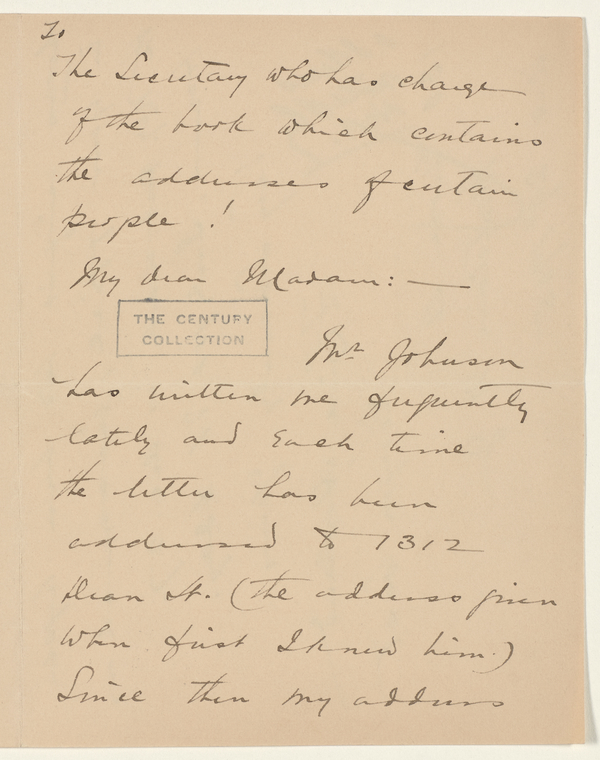 To
The Secretary who has charge
of the book which contains
the addresses of certain
people!
My dear Madam:—
THE CENTURY
COLLECTION
Mr Johnson
has written me frequently
lately and each time
the letter has been
addressed to 1312
Dean St. (the address given
when first I knew him.)
Since then my address